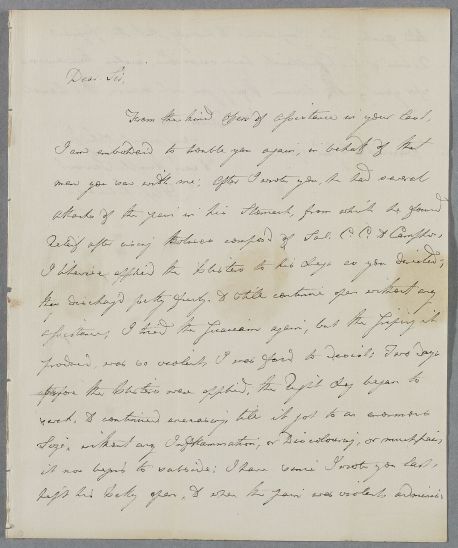 Dear Sir,
From the kind offers of assistance in your last,
I am embolden'd to trouble you again, in behalf of that
man you was with me; after I wrote you, he had several
attacks of the pain in his Stomach, from which he found
relief after using compos'd of Sal. C. C. & Camphor,
I likewise applied the blisters to his Legs as you directed,
they discharg'd pretty freely & still continue open without any
assistance; I tried the Guaiacum again, but the griping it
produced, was so violent I was forced to desist; Two days
before the blisters were applied, the Right Leg began to
& continued encreasing till it got to an enormous
Size, without any Inflammation, or Discolouring, or much pain,
it now begins to subside: I have since I wrote you last,
kept his belly open, & when the pain was violent adminis-